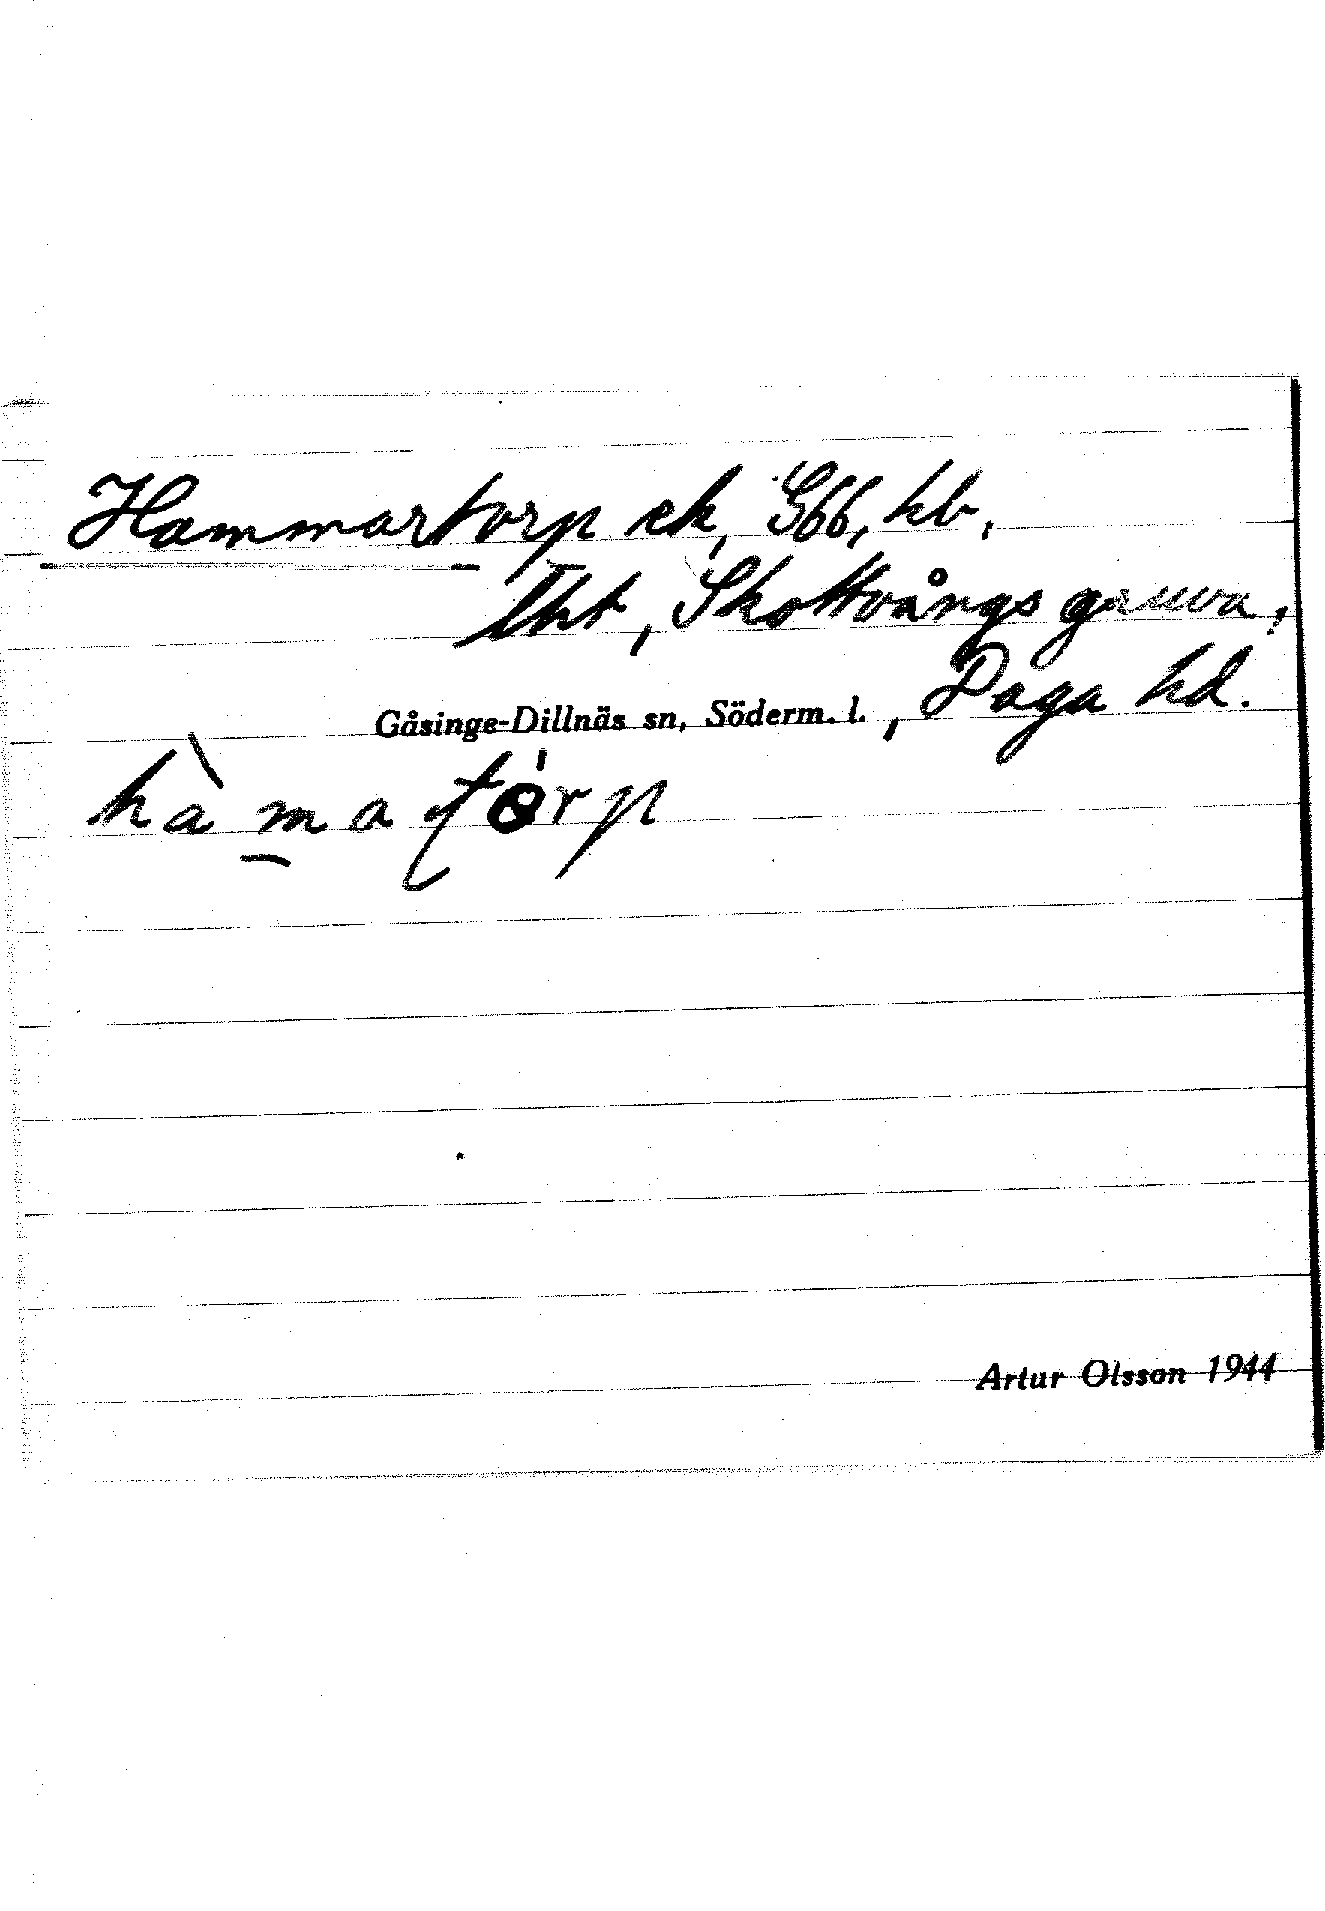 Hammartorp ek, G66, hb,
lht, Skottvångs gruva,
Gåsinge-Dillnäs sn, Söderm. l., Daga hd.
hàmatörp
Artur Olsson 1944